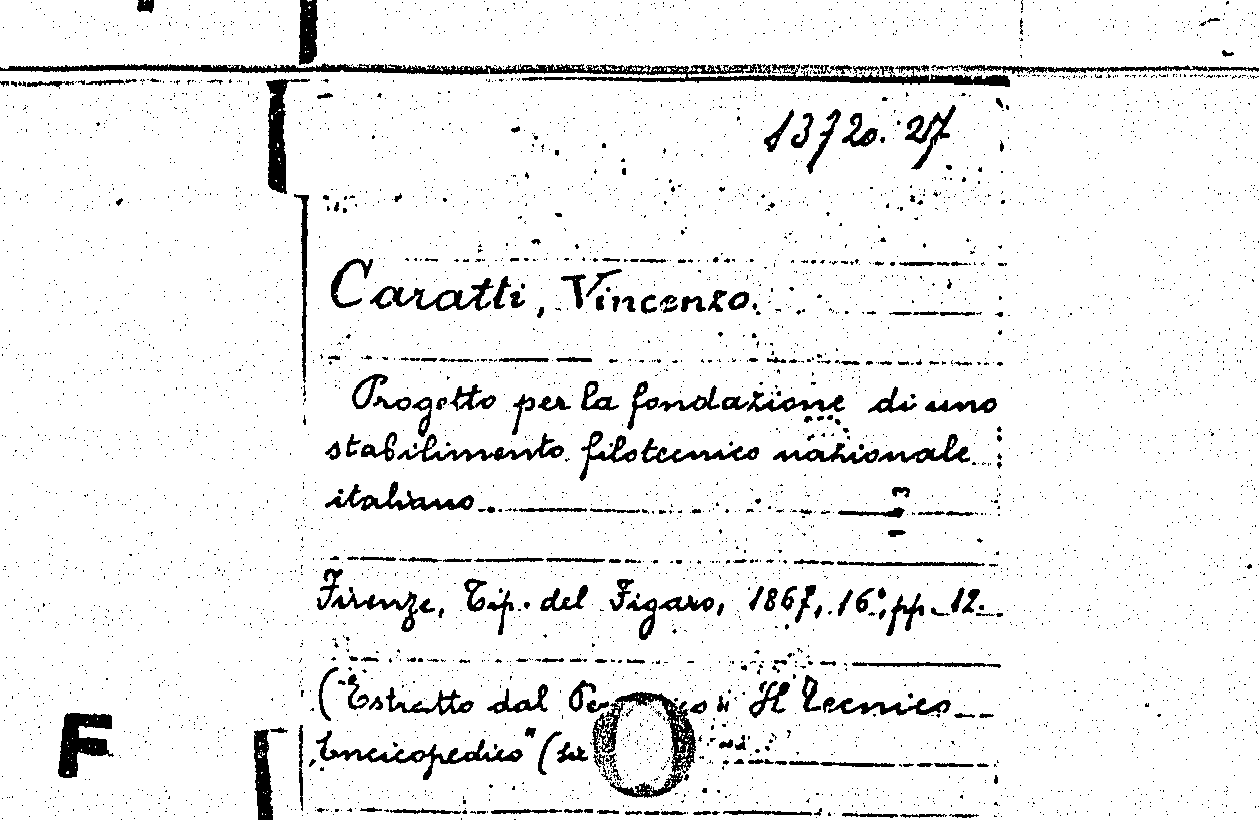 13720. 27
Caratti, Vincenzo.
Progetto per la fondazione di uno
stabilimento filotecnico nazionale
italiano.
Firenze, Tip. del Figaro, 1867, 16°, pp. 12.
(Estratto dal " Il Tecnico
Encicopedico" (
F